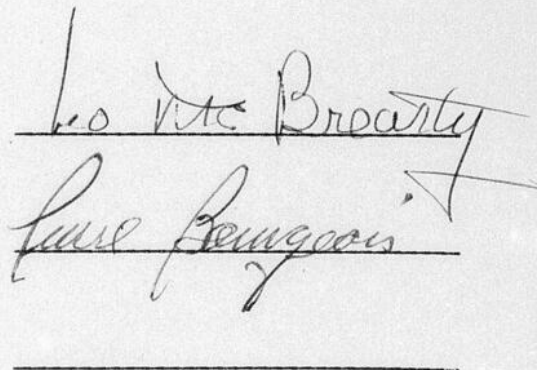 Leo Mc Brearty
Bourgeois